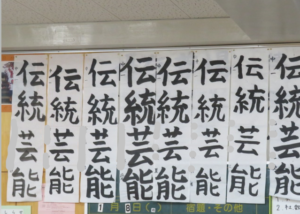 伝統芸能
伝統芸能
伝統芸能
伝統芸能
伝統芸能
伝統芸能
伝統芸能
伝統芸能
月 日( )
宿題・その他